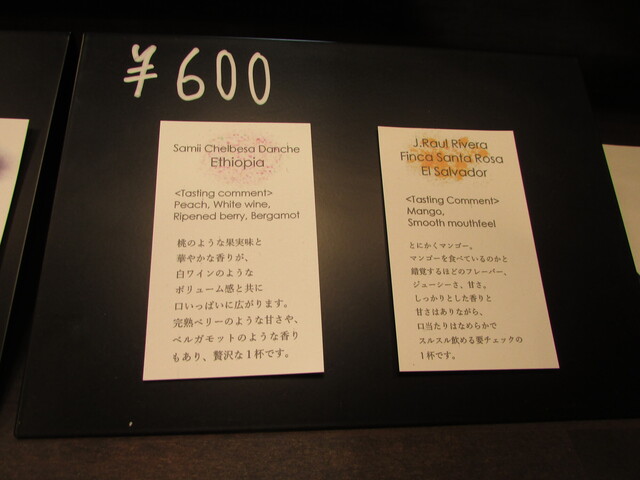 ¥600
Samii Chelbesa Danche
Ethiopia
<Tasting comment>
Peach, White wine,
Ripened berry, Bergamot
桃のような果実味と
華やかな香りが、
白ワインのような
ボリューム感と共に
口いっぱいに広がります。
完熟ベリーのような甘さや、
ベルガモットのような香り
もあり、贅沢な1杯です。
J.Raul Rivera
Finca Santa Rosa
El Salvador
<Tasting Comment>
Mango,
Smooth mouthfeel
とにかくマンゴー。
マンゴーを食べているのかと
錯覚するほどのフレーバー。
ジューシーさ、甘さ。
しっかりとした香りと
甘さはありながら、
口当たりはなめらかで
スルスル飲める要チェックの
1杯です。